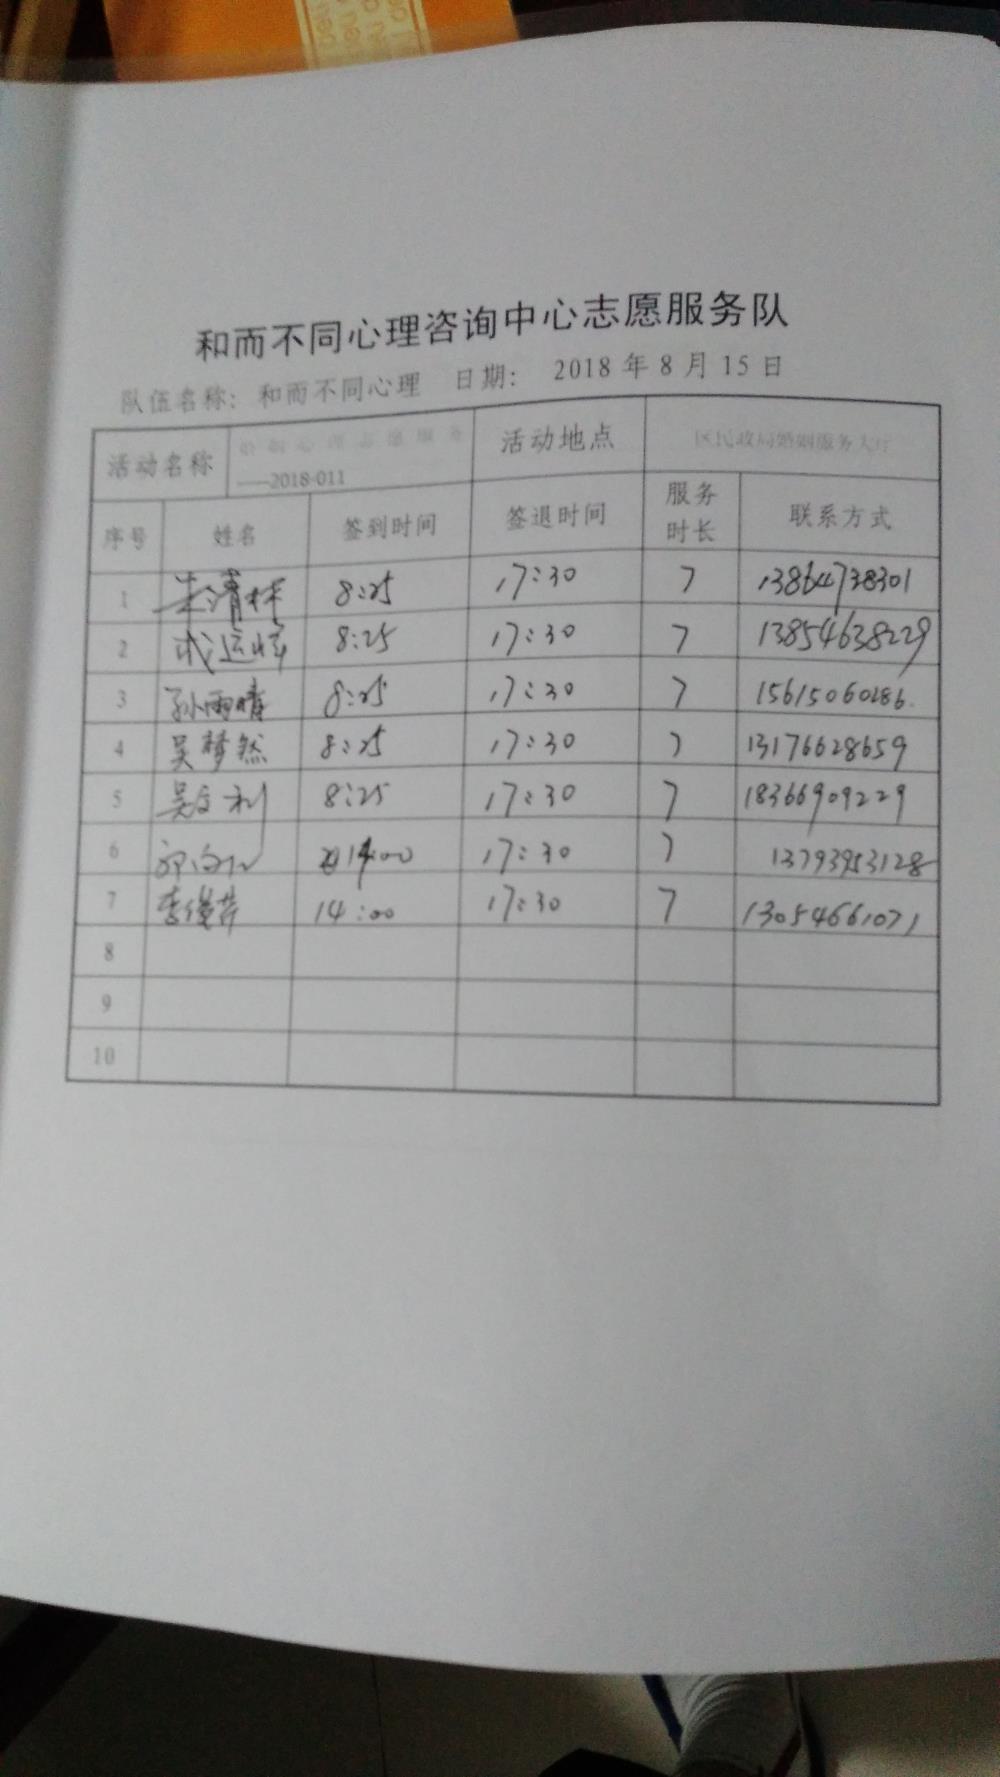 和而不同心理咨询中心志愿服务队
队伍名称: 和而不同心理 日期: 2018 年 8 月 15 日
活动名称 婚姻心理志愿服务 ——2018-011 活动地点 区民政局婚姻服务大厅
序号 姓名 签到时间 签退时间 服务时长 联系方式
1 8:25 17:30 7 13864738301
2 8:25 17:30 7 13854638229
3 孙雨晴 8:25 17:30 7 15615060286
4 吴梦然 8:25 17:30 7 13176628659
5 吴文利 8:25 17:30 7 18366909229
6 14:00 17:30 7 13793953128
7 李俊芹 14:00 17:30 7 13054661071
8
9
10